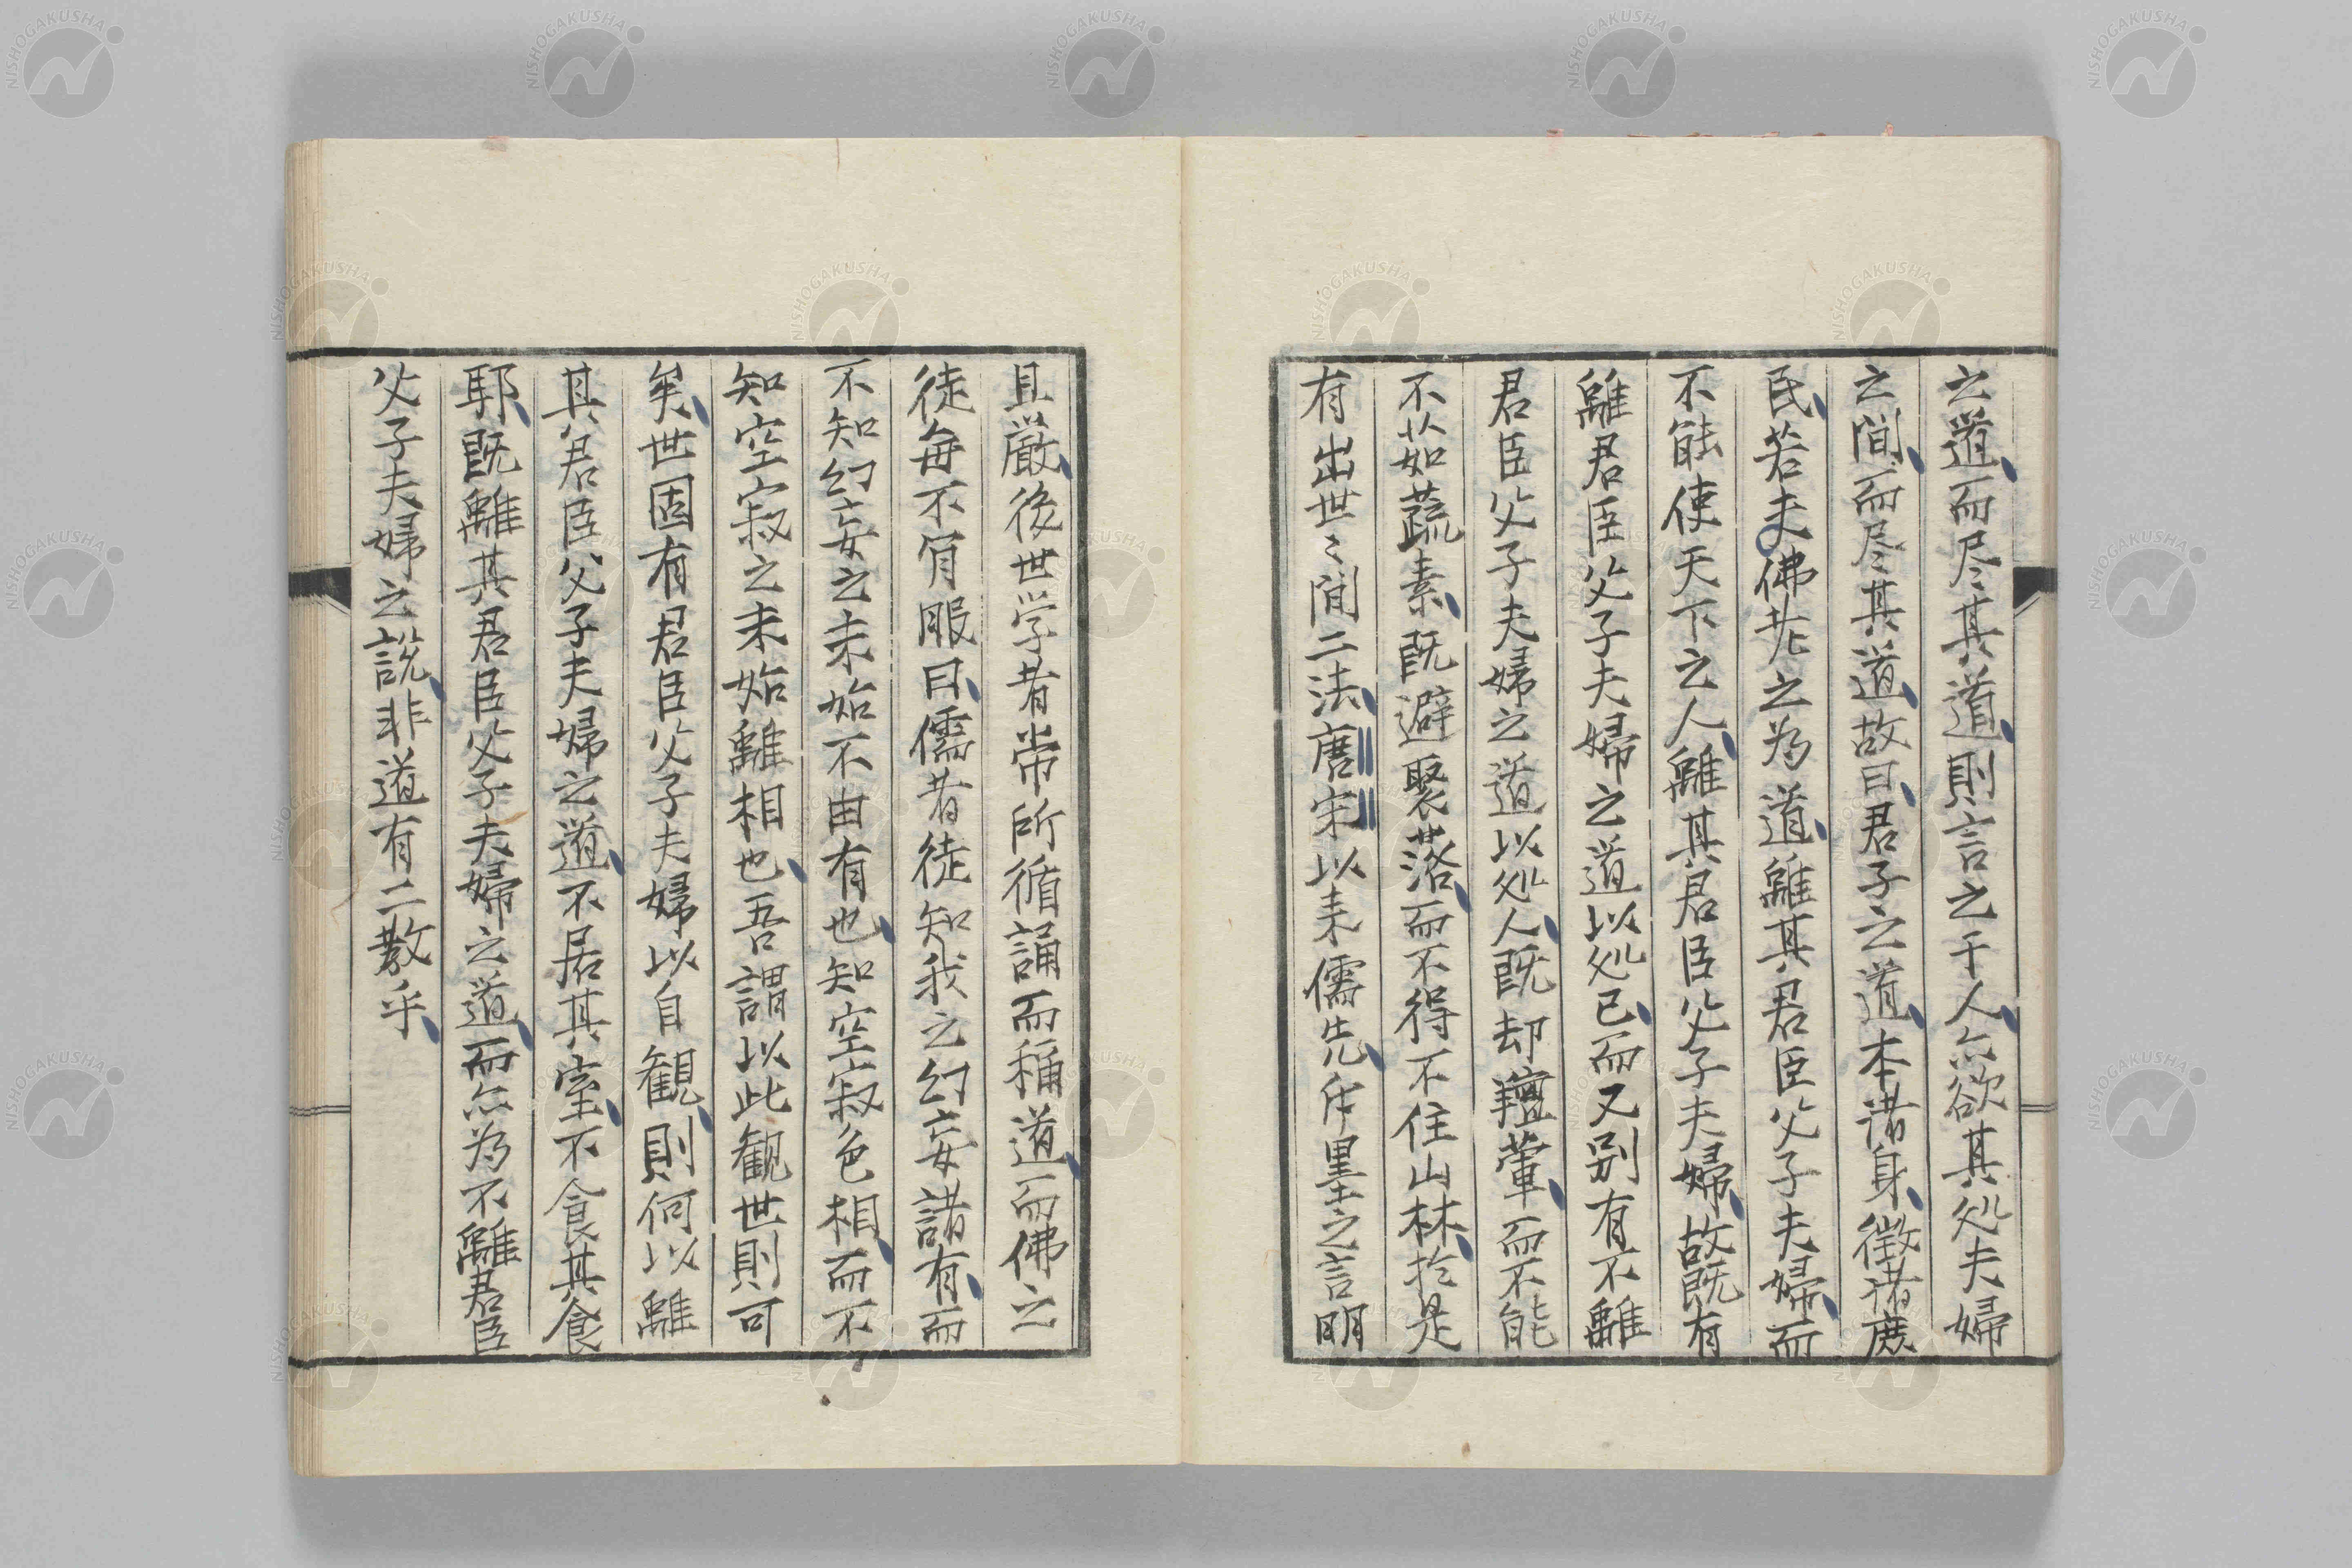 之道而尽其道則言之于人亦欲其処夫婦
之間而尽其道故曰君子之道本諸身徴諸庶
民若夫佛老之為道離其君臣父子夫婦而
不能使天下之人離其君臣父子夫婦故既有
離君臣父子夫婦之道以処己而又別有不離
君臣父子夫婦之道以処人既却羶葷而不能
不茹蔬素既避聚落而不得不住山林於是
有出世々間二法唐宋以来儒先斥墨之言明
且厳後世学者常所循誦而稱道而佛之
徒毎不肯服曰儒者徒知我之幻妄諸有而
不知幻妄之未始不由有也知空寂色相而不
知空寂之未始離相也吾謂以此観世則可
矣世固有君臣父子夫婦以自観則何以離
其君臣父子夫婦之道不居其室不食其食
耶既離其君臣父子夫婦之道而亦為不離君臣
父子夫婦之説非道有二教乎
NISHOGAKUSHA